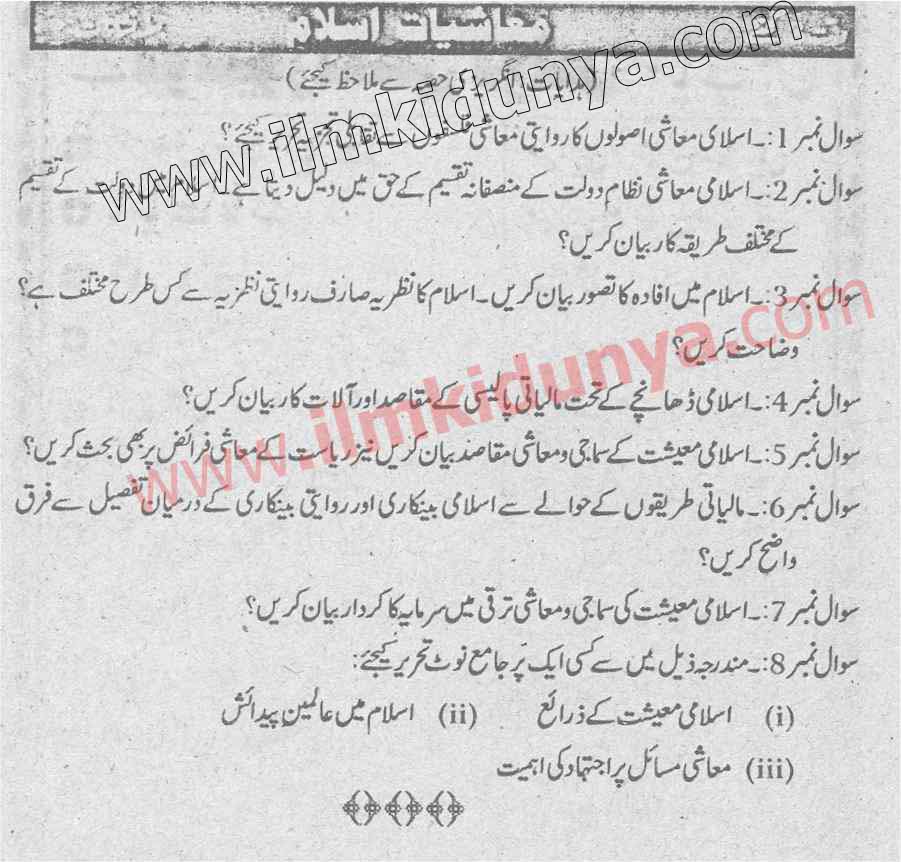 معاشیات اسلام
سوال نمبر 1:۔ اسلامی معاشی اصولوں کا روایتی معاشی تجزیہ کیجئے؟
سوال نمبر 2:۔ اسلامی معاشی نظام دولت کے منصفانہ تقسیم کے حق میں دلیل دیتا ہے۔ کے تقسیم
کے مختلف طریقہ کار بیان کریں؟
سوال نمبر 3:۔ اسلام میں افادہ کا تصور بیان کریں۔ اسلام کا نظریہ صارف روایتی نظریہ سے کس طرح مختلف ہے؟
وضاحت کریں؟
سوال نمبر 4:۔ اسلامی ڈھانچے کے تحت مالیاتی پالیسی کے مقاصد اور آلات کار بیان کریں؟
سوال نمبر 5:۔ اسلامی معیشت کے سماجی و معاشی مقاصد بیان کریں نیز ریاست کے معاشی فرائض پر بھی بحث کریں؟
سوال نمبر 6:۔ مالیاتی طریقوں کے حوالے سے اسلامی بینکاری اور روایتی بینکاری کے درمیان تفصیل سے فرق
واضح کریں؟
سوال نمبر 7:۔ اسلامی معیشت کی سماجی و معاشی ترقی میں سرمایہ کا کردار بیان کریں؟
سوال نمبر 8:۔ مندرجہ ذیل میں سے کسی ایک پر جامع نوٹ تحریر کیجئے:
(i) اسلامی معیشت کے ذرائع (ii) اسلام میں عالمین پیدائش
(iii) معاشی مسائل پر اجتہاد کی اہمیت
www.ilmkidunya.com
www.ilmkidunya.com